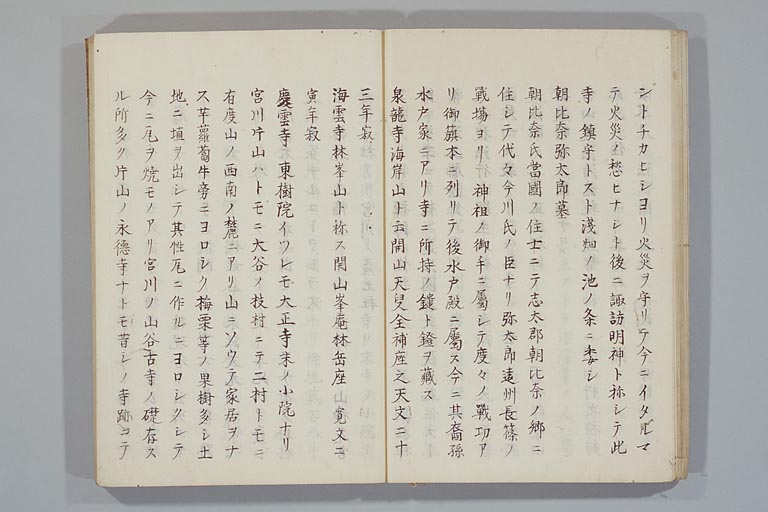 シトチカヒシヨリ火災ヲ守リテ今ニイタルマ
テ火災ノ愁ヒナシト後ニ諏訪明神ト祢シテ此
寺ノ鎮守トスト浅畑ノ池ノ条ニ委シ
朝比奈弥太郎墓
朝比奈氏當國ノ住士ニテ志太郡朝比奈ノ郷ニ
住シテ代々今川氏ノ臣ナリ弥太郎遠州長篠ノ
戰場ヨリ神祖ノ御手ニ屬シテ度々ノ戰功ア
リ御籏本ニ列リテ後水戸殿ニ屬ス今ニ其裔孫
水戸家ニアリ寺ニ所持ノ鑓ト鐙ヲ藏ス
泉龍寺海岸山ト云開山天叟全補座之天文二十
三年寂
海雲寺林峯山ト祢ス開山峯庵林岳座山寛文二
寅年寂
慶雲寺 東樹院イツレモ大正寺末ノ小院ナリ
宮川片山ハトモニ大谷ノ枝村ニテ二村トモニ
有度山ノ西南ノ麓ニアリ山ニソウテ家居ヲナ
ス芋蘿蔔牛旁ニヨロシク梅栗等ノ果樹多シ土
地ニ埴ヲ出シテ其性瓦ニ作ルニヨロシクシテ
今ニ瓦ヲ焼モノアリ宮川ノ山谷古寺ノ礎存ス
ル所多ク片山ノ永德寺ナトモ昔シノ寺跡コテ